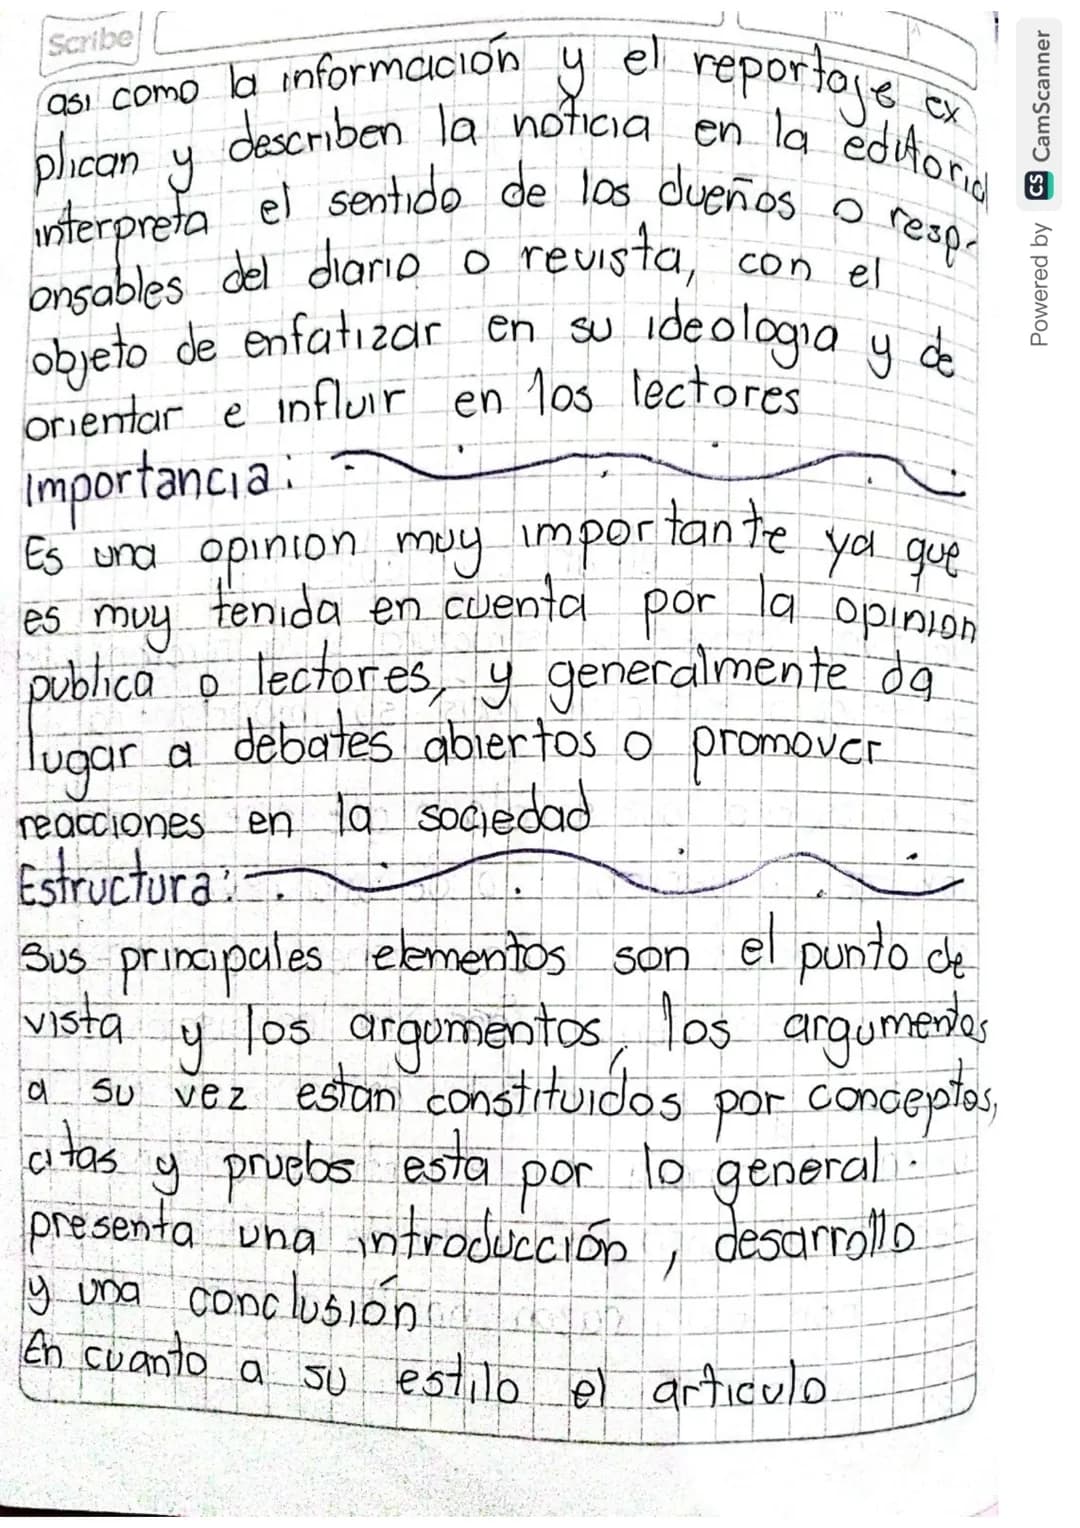 Scribe
asi como la información y el reportaje ex
plican y describen la noticia en la editorial
interpreta el sentido de los dueños o resp-
onsables del diario o revista, con el
objeto de enfatizar en su ideologia y de
orientar e influir en los lectores
Importancia:
Es una opinion muy importante ya que
es muy tenida en cuenta por la opinion
publica o lectores, y generalmente da
lugar a debates abiertos o promover
reacciones en la sociedad
Estructura:
Sus principales elementos son el punto de
vista y los argumentos, los argumentos
a su vez estan constituidos por conceptos,
citas y pruebs esta por lo general.
presenta una introducción, desarrollo
y una conclusión
En cuanto a su estilo el articulo
Powered by CS CamScanner